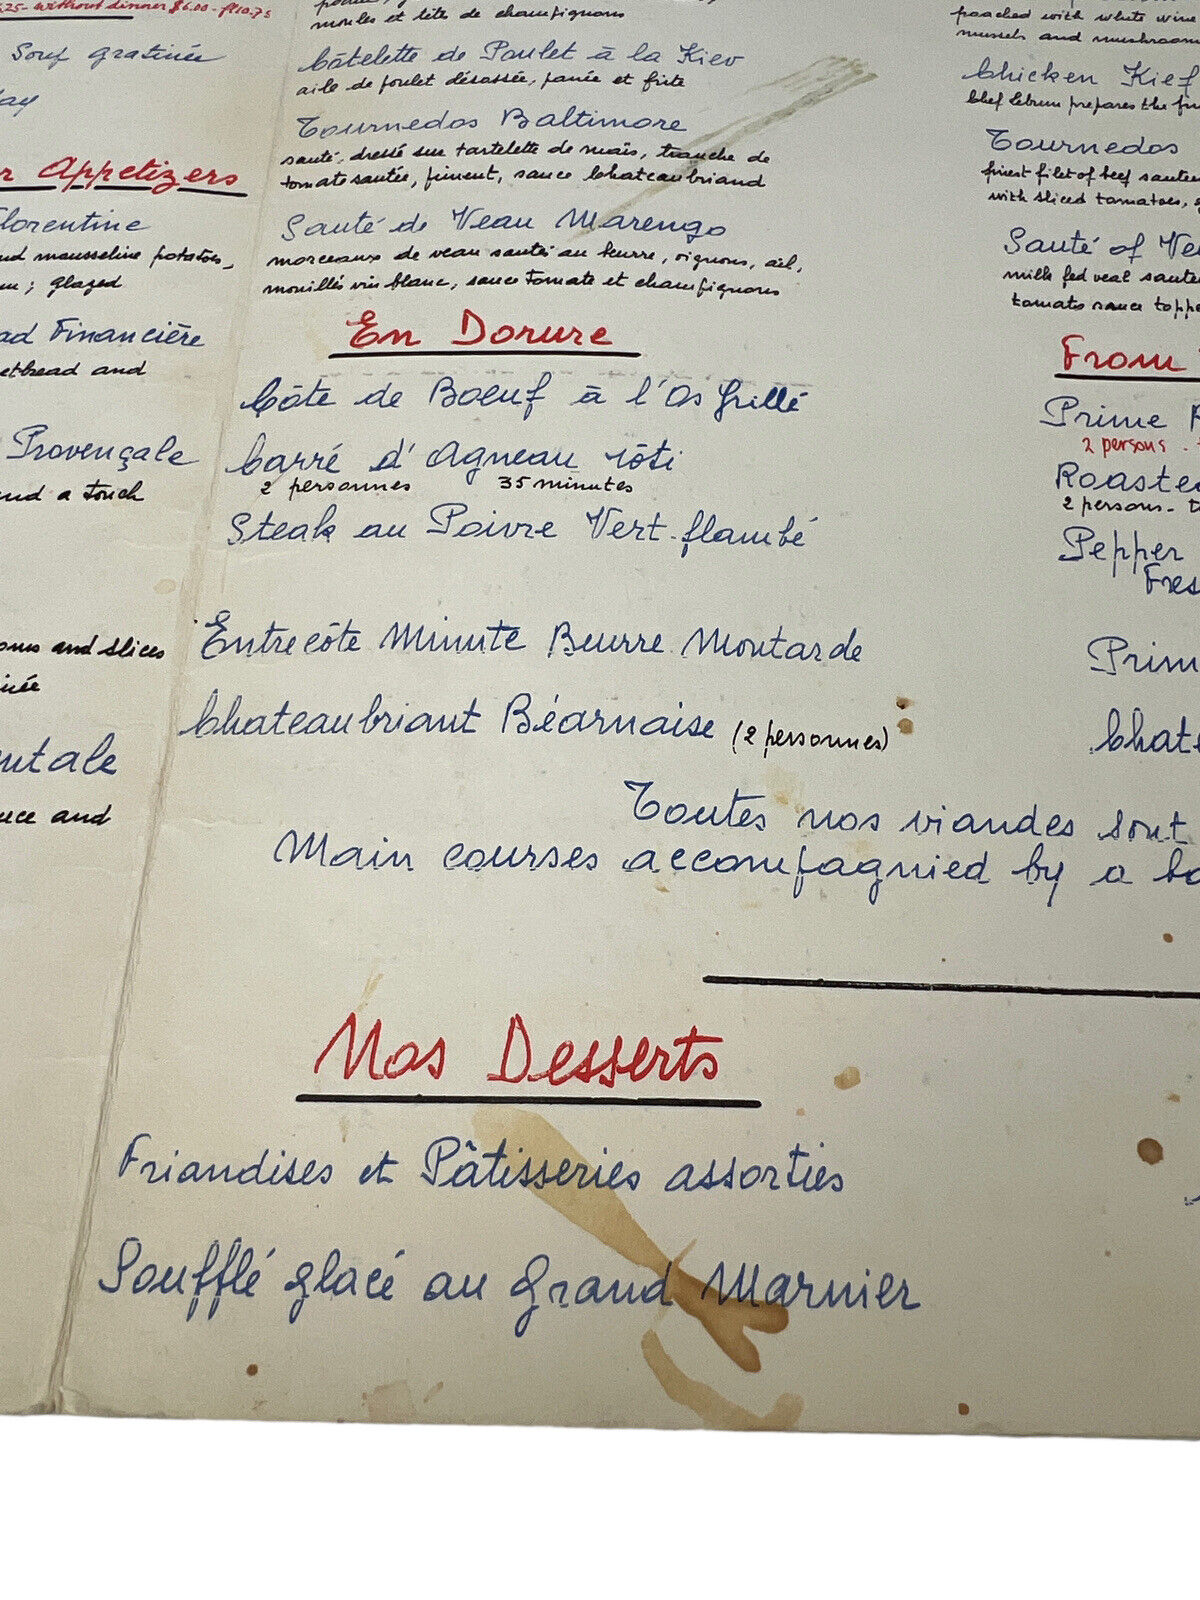 without dinner $6.00 -
Souf gratinée
Appetizers
Florentine
and mousseline potatoes,
glazed
Financière
and
Provençale
and a touch
and slices
and
moules et tête de champignons
Côtelette de Poulet à la Kiev
aile de poulet désossée, panée et frite
Tournedos Baltimore
sauté, dressé sur tartelette de maïs, tranche de
tomate sautée, piment, sauce Chateaubriand
Sauté de Veau Marengo
morceaux de veau sautés au beurre, oignons, ail,
mouillés vin blanc, sauce tomate et champignons
En Dorure
Côte de Boeuf à l'Os Grillé
Carré d'Agneau rôti
2 personnes 35 minutes
Steak au Poivre Vert-flambé
Entrecôte Minute Beurre Moutarde
Chateaubriant Béarnaise (2 personnes)
Toutes nos viandes sont
Main courses accompagnied by a
Nos Desserts
Friandises et Pâtisseries assorties
Soufflé glacé au Grand Marnier
poached with white wine
mussels and mushrooms
Chicken Kief
Chef Lebrun prepares the
Tournedos
finest filet of beef
with sliced tomatoes,
Sauté of
milk fed veal
tomato sauce
From
Prime
2 persons -
2 persons -
Pepper